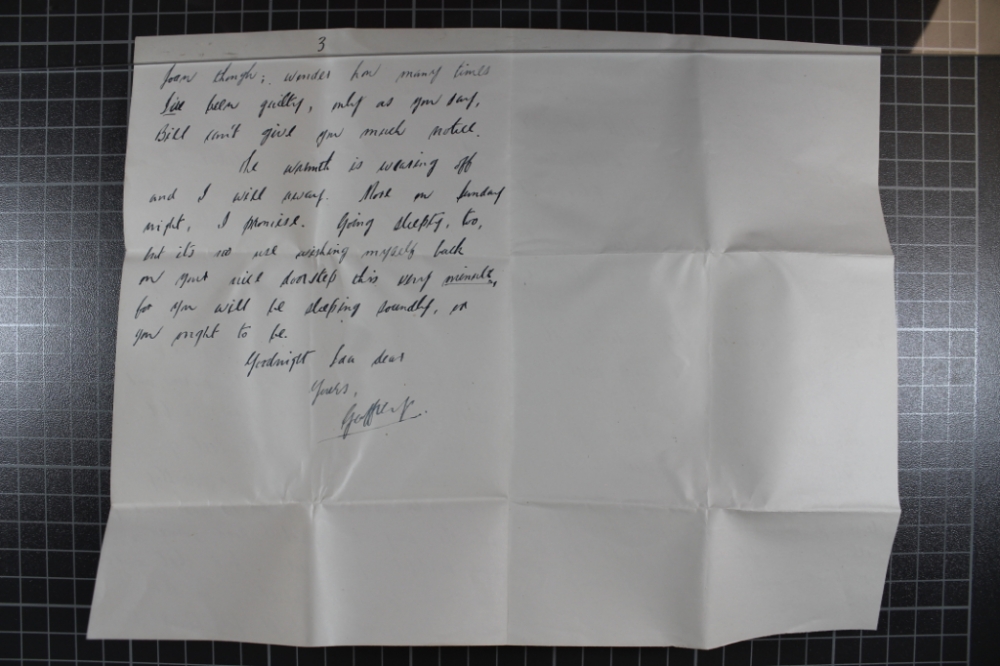 3
form though; wonder how many times
I've been guilty, only as you say,
Bill can't give you much notice.
The warmth is wearing off
and I will away. More on Sunday
night, I promise. Going sleepy, too,
but it's no use wishing myself back
on your nice doorstep this very minute,
for you will be sleeping soundly, or
you ought to be.
Goodnight dear
Yours,
Geoffrey.